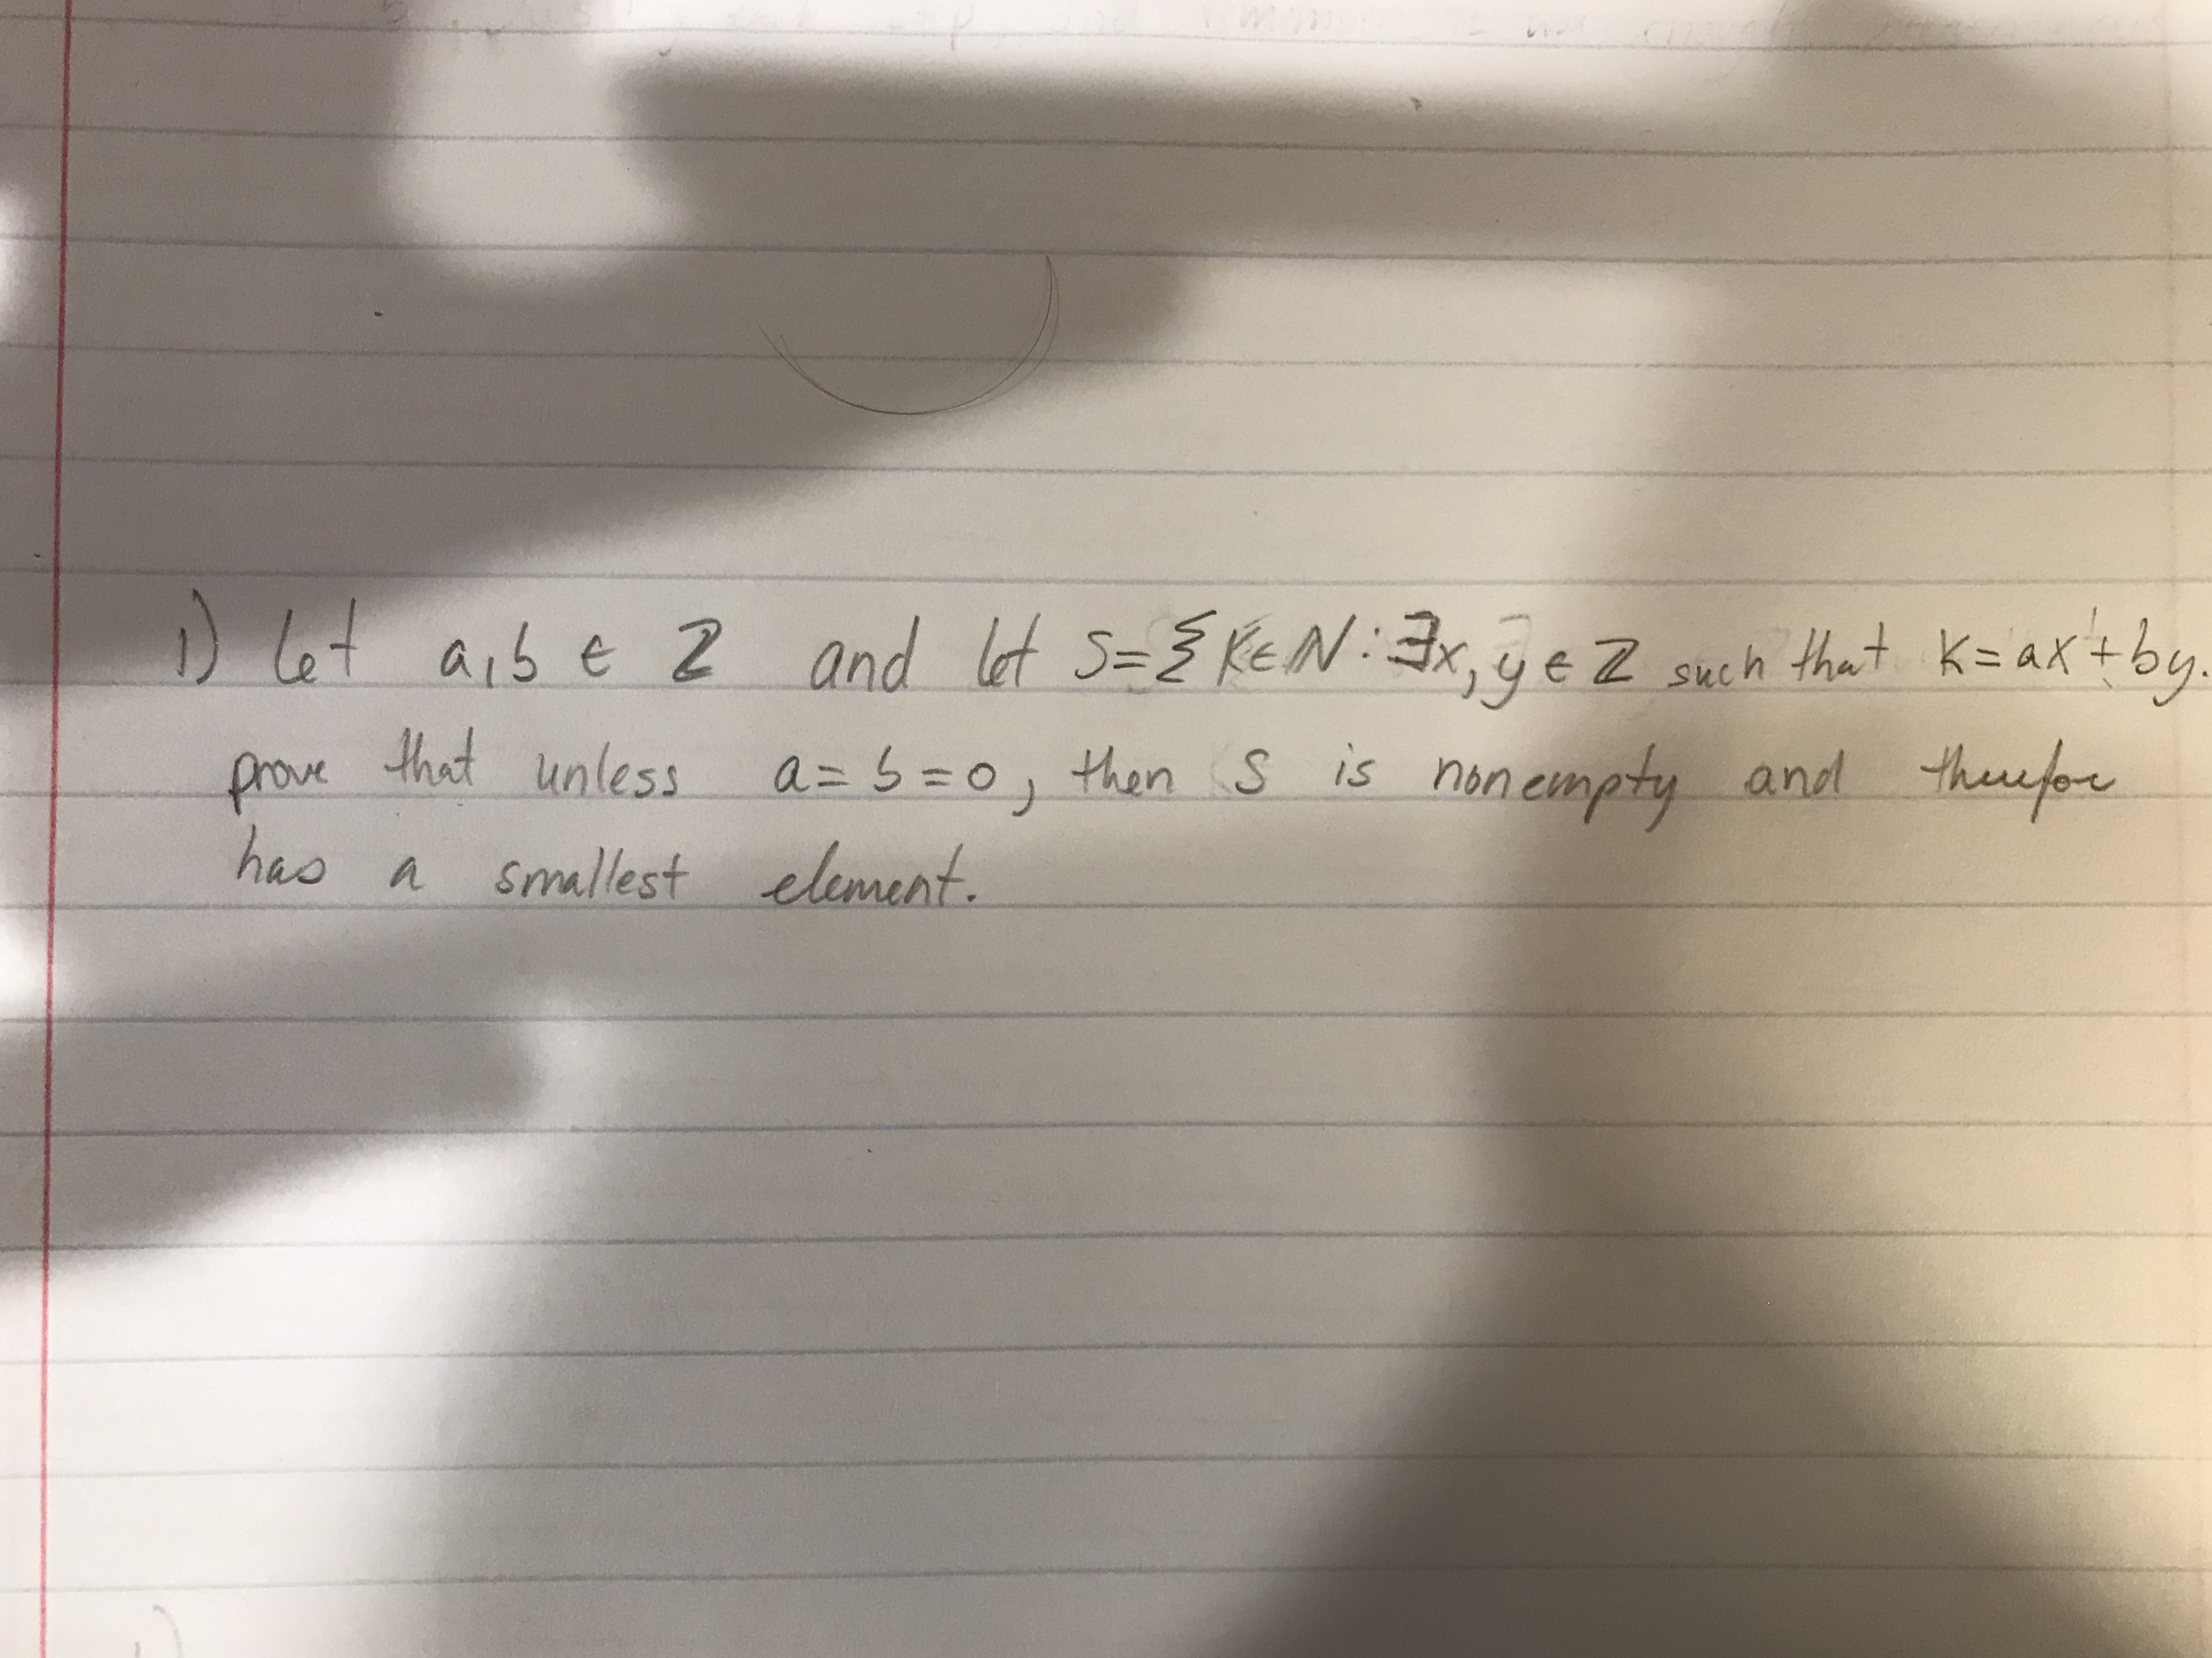 1) Let a,b ∈ ℤ and let S={K∈ℕ: ∃x,y∈ℤ such that K=ax+by.
prove that unless a=b=0, then S is nonempty and therefor
has a smallest element.